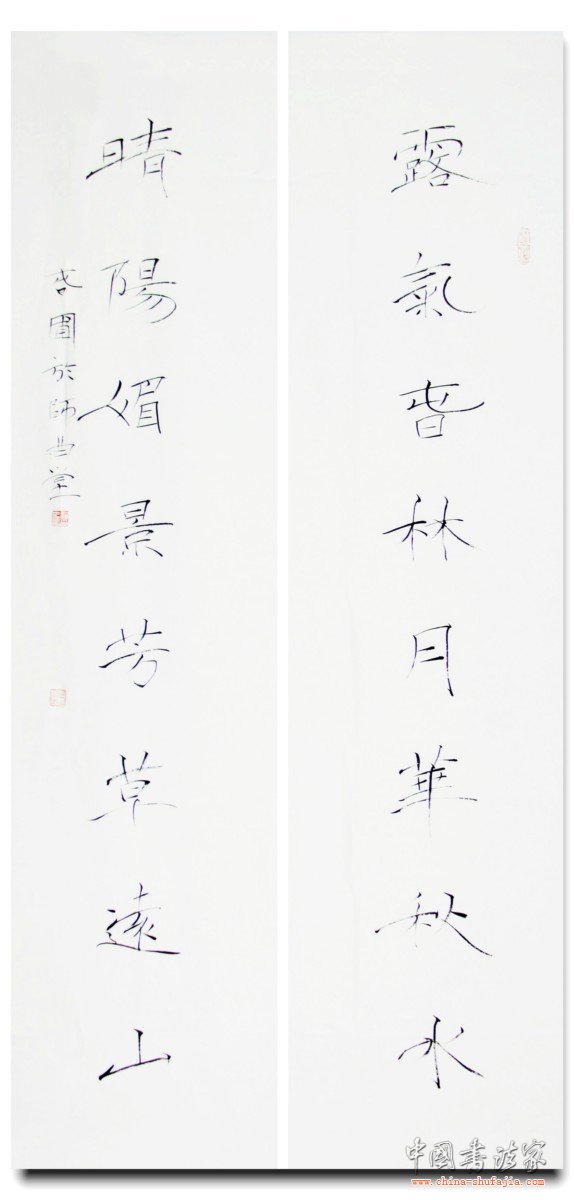 露氣春林月華秋水
晴陽媚景芳草遠山
於師曲堂
中国书法家
www.china-shufajia.com